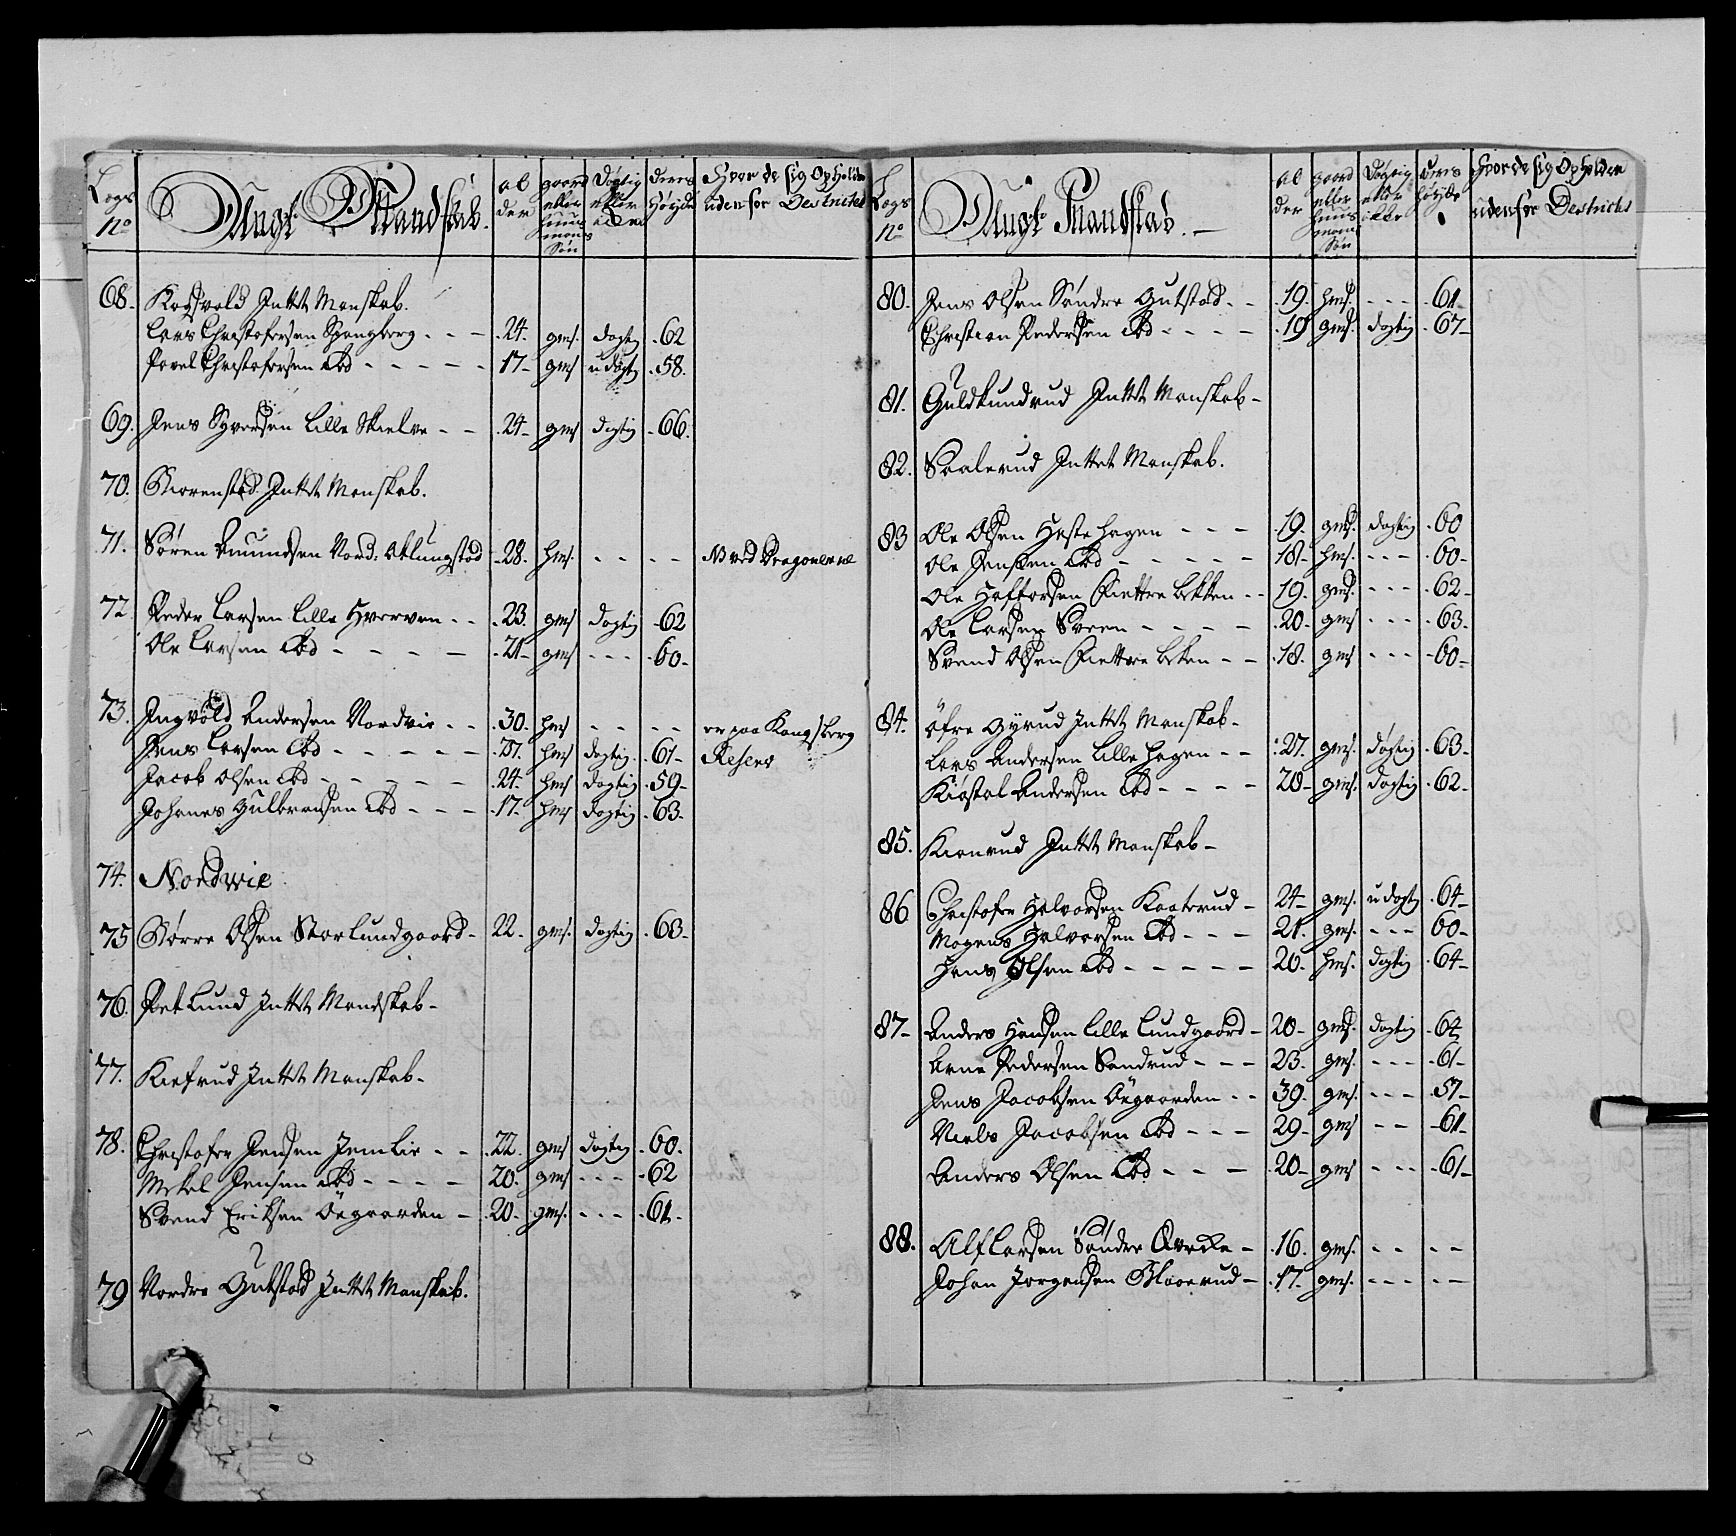 Legs No
Ungt Mandskab.
al der
gaard eller huus mons Søn
Dygtig eller ikke
deres Høyde
Hvor de sig Opholder udenfor Destrictet
68. Kosvold Intet Manskab.
Lars Christofersen Spangberg - - - 24. gms. dogtig 62
Povel Christofersen ibd - - - - - 17- gms udogt 58.
69. Jens Syversen Lille Skielve - - 24- gms dogtig 66.
70. Kiorenstad Intet Manskab.
71. Søren Amundsen Nord: Aklungstad 28. hms. - - - - N ved Dragonerne
72 Peder Larsen Lille Hverven - - 23. gms dogtig 62
Ole Larsen ibd - - - - 21- gms - - - 60-
73. Ingvold Andersen Nordvie - - 30. hms - - - - er paa Kongsberg
Jens Larsen ibd - - - - - hms dogtig 61- Reserv
Jacob Olsen ibd - - - - - 24- hms dogtig 59-
Johanes Gulbransen ibd - - - 17- hms dogtig 63-
74. Nordwie
75 Kiørre Olsen Storlundgaard - 22- gms. dogtig 63-
76. Petlund Intet Mandskab-
77. Kiefrud Intet Manskab-
78. Christofer Jensen Jemlie - - 22. gms dogtig 60.
Mekel Jensen ibd - - - - 20. gms - - - 62
Svend Eriksen Öegaarden - 20- gms. - - - 61-
79 Nordre Gutstad Intet Manskab.
Legs No
Ungt Mandskab. -
al der
gaard eller huus mons Søn
Dogtig eller ikke
deres høyde
Hvor de sig Opholder udenfor Destrictet
80. Jens Olsen Søndre Gutstad - - 19. hms. - - - 61-
Christian Pedersen ibd - - - - 19 gms. dogtig 67-
81. Guldkundrud Intet Manskab-
82. Saalerud Intet Manskab.
83 Ole Olsen Hestehagen - - - 19- gms. dogtig 60
Ole Jensen ibd - - - - - 18- hms. - - - 60-
Ole Haftorsen Kiettre bakken - - 19- gms. - - - 62-
Ole Larsen Sveen - - - - 20- gms - - - 63-
Svend Olsen Kiettre bakken - - 18- gms - - - 60-
84. Öfre Gÿrud Intet Manskab-
Lars Andersen Lille Hagen - - 27. gms. dögtig 63-
Kiøstol Andersen ibd - - - - 20- gms. dogtig 62-
85. Kionrud Intet Manskab-
86 Christofer Halvorsen Kaaterud - 24- gms. udogt 64-
Mogens Halvorsen ibd - - - 21. gms. - - - 60-
Hans Olsen ibd - - - - - 20- hms. dogtig 64-
87- Anders Hansen Lille Lundgaard - 20- gms. dogtig 64
Arne Pedersen Sandrud - - - 23- gms. - - - 61-
Jens Jacobsen Öegaarden - - 39- gms. - - - 57-
Niels Jacobsen ibd - - - 29- gms - - 61-
Anders Olsen ibd - - - 20- gms - - - 61-
88. Alf Larsen Søndre Qvecke - 16. gms. - - - -
Johan Jorgensen - 17- gms. - - - - -